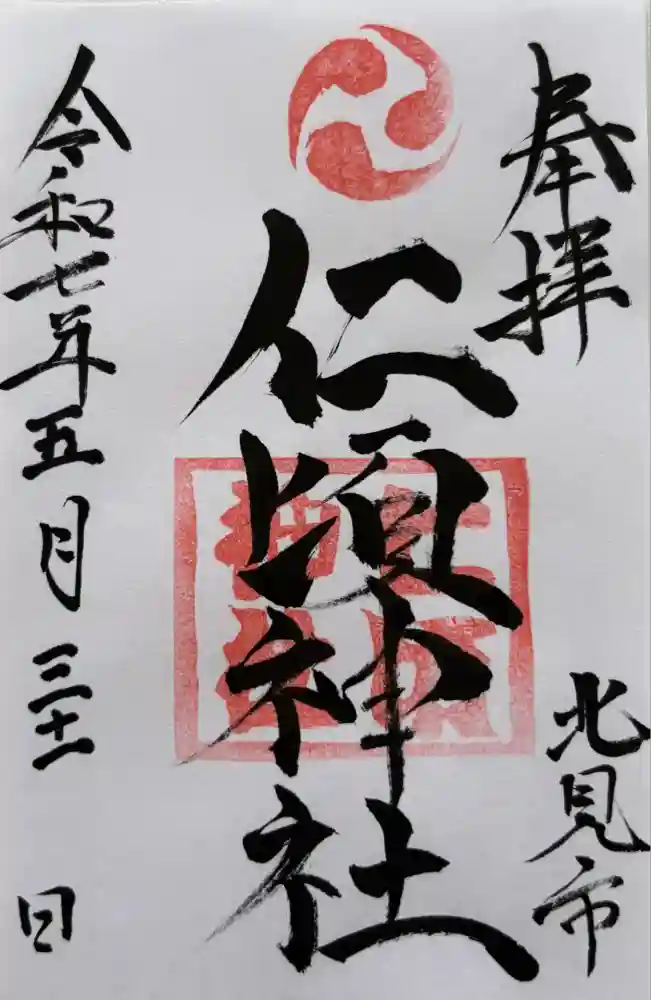 奉拝
北見市
仁頃神社
仁頃神社
令和七年五月三十一日